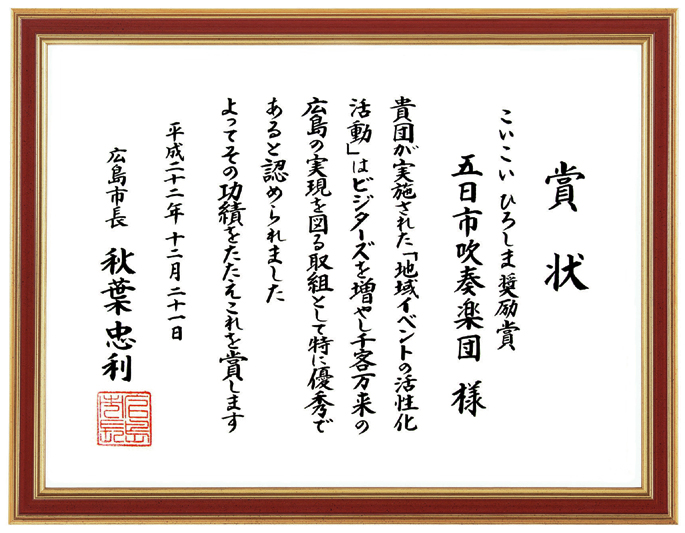 賞状
こいこい ひろしま 奨励賞
五日市吹奏楽団 様
貴団が実施された「地域イベントの活性化
活動」はビジターズを増やし千客万来の
広島の実現を図る取組として特に優秀で
あると認められました
よってその功績をたたえこれを賞します
平成二十二年 十二月 二十一日
広島市長 秋葉忠利
広島市長